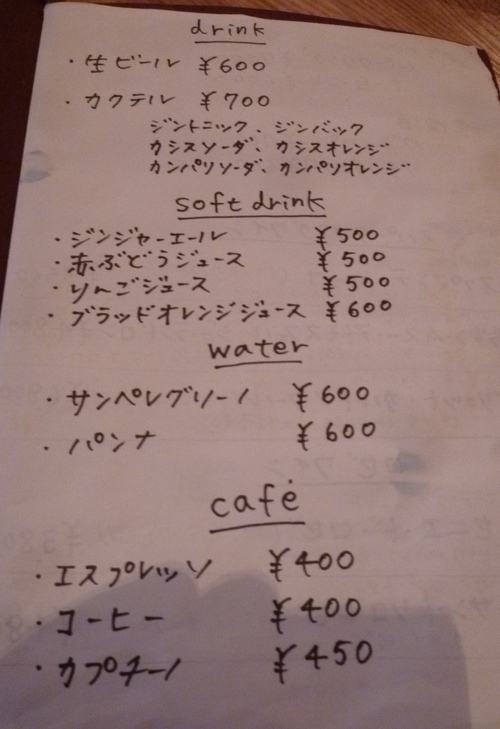 drink
・生ビール ¥600
・カクテル ¥700
ジントニック、ジンバック
カシスソーダ、カシスオレンジ
カンパリソーダ、カンパリオレンジ
soft drink
・ジンジャーエール ¥500
・赤ぶどうジュース ¥500
・りんごジュース ¥500
・ブラッドオレンジジュース ¥600
water
・サンペレグリーノ ¥600
・パンナ ¥600
café
・エスプレッソ ¥400
・コーヒー ¥400
・カプチーノ ¥450